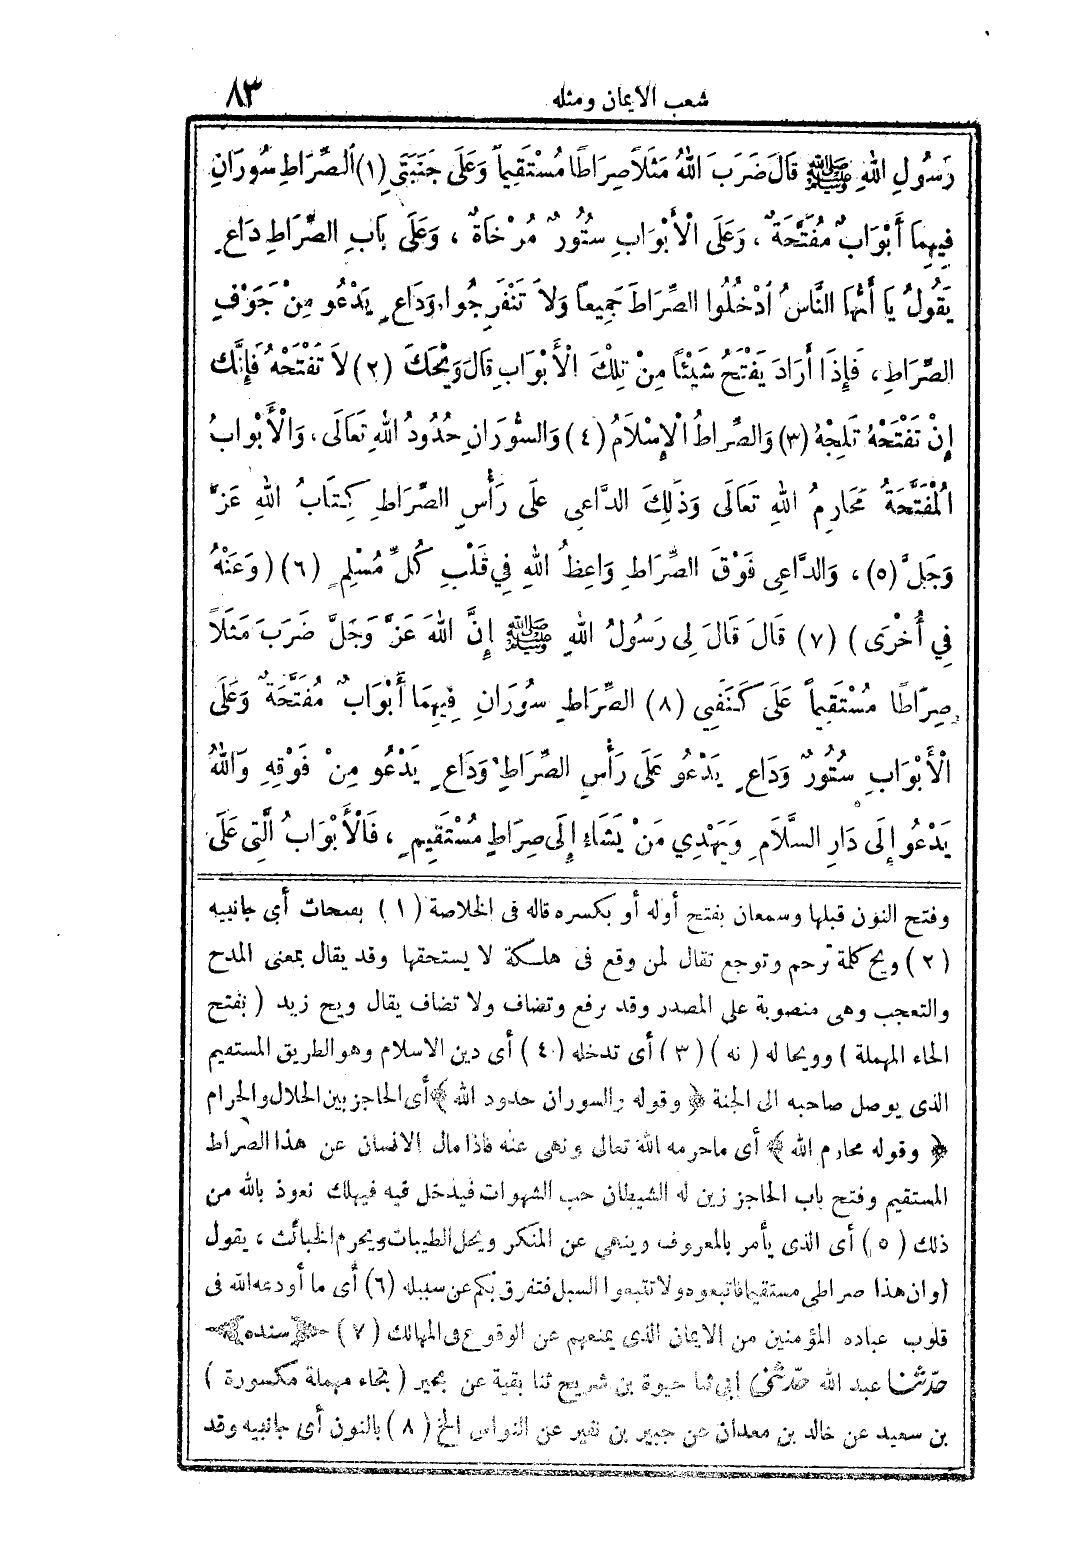 شعب الايمان ومثله ٨٣
رَسُولِ اللهِ ﷺ قَالَ ضَرَبَ اللهُ مَثَلاً صِرَاطًا مُسْتَقِيماً وَعَلَى جَنَبَتَيِ (١) الصِّرَاطِ سُورَانِ
فِيهِمَا أَبْوَابٌ مُفَتَّحَةٌ ، وَعَلَى الْأَبْوَابِ سُتُورٌ مُرْخَاةٌ ، وَعَلَى بَابِ الصِّرَاطِ دَاعٍ
يَقُولُ يَا أَيُّهَا النَّاسُ اُدْخُلُوا الصِّرَاطَ جَمِيعاً وَلاَ تَنْفَرِجُوا، وَدَاعٍ يَدْعُو مِنْ جَوْفِ
الصِّرَاطِ ، فَإِذَا أَرَادَ يَفْتَحُ شَيْئاً مِنْ تِلْكَ الْأَبْوَابِ قَالَ وَيْحَكَ (٢) لاَ تَفْتَحْهُ فَإِنَّكَ
إِنْ تَفْتَحْهُ تَلِجْهُ (٣) وَالصِّرَاطُ الْإِسْلاَمُ (٤) وَالسُّورَانِ حُدُودُ اللهِ تَعَالَى ، وَالْأَبْوَابُ
الْمُفَتَّحَةُ مَحَارِمُ اللهِ تَعَالَى وَذَلِكَ الدَّاعِى عَلَى رَأْسِ الصِّرَاطِ كِتَابُ اللهِ عَزَّ
وَجَلَّ (٥) ، وَالدَّاعِى فَوْقَ الصِّرَاطِ وَاعِظُ اللهِ فِي قَلْبِ كُلِّ مُسْلِمٍ (٦) ( وَعَنْهُ
فِي أُخْرَى ) (٧) قَالَ قَالَ لِى رَسُولُ اللهِ ﷺ إِنَّ اللهَ عَزَّ وَجَلَّ ضَرَبَ مَثَلاً
صِرَاطًا مُسْتَقِيماً عَلَى كَنَفَيِ (٨) الصِّرَاطِ سُورَانِ فِيهِمَا أَبْوَابٌ مُفَتَّحَةٌ وَعَلَى
الْأَبْوَابِ سُتُورٌ وَدَاعٍ يَدْعُو عَلَى رَأْسِ الصِّرَاطِ وَدَاعٍ يَدْعُو مِنْ فَوْقِهِ وَاللهُ
يَدْعُو إِلَى دَارِ السَّلاَمِ وَيَهْدِي مَنْ يَشَاءُ إِلَى صِرَاطٍ مُسْتَقِيمٍ ، فَالْأَبْوَابُ الَّتِي عَلَى
وفتح النون قبلها وسمعان بفتح أوله أو بكسره قاله فى الخلاصة (١) بفتحات أى جانبيه
(٢) ويح كلمة ترحم وتوجع تقال لمن وقع فى هلكة لا يستحقها وقد يقال بمعنى المدح
والتعجب وهى منصوبة على المصدر وقد ترفع وتضاف ولا تضاف يقال ويح زيد ( بفتح
الحاء المهملة ) وويحا له ( نه ) (٣) أى تدخله (٤) أى دين الاسلام وهو الطريق المستقيم
الذى يوصل صاحبه الى الجنة ﴿ وقوله والسوران حدود الله ﴾ أى الحاجز بين الحلال والحرام
﴿ وقوله محارم الله ﴾ أى ماحرمه الله تعالى ونهى عنه فاذا مال الانسان عن هذا الصراط
المستقيم وفتح باب الحاجز زين له الشيطان حب الشهوات فيدخل فيه فيهلك نعوذ بالله من
ذلك (٥) أى الذى يأمر بالمعروف وينهى عن المنكر ويحل الطيبات ويحرم الخبائث ، يقول
(وان هذا صراطى مستقيما فاتبعوه ولا تتبعوا السبل فتفرق بكم عن سبيله (٦) أى ما أودعه الله فى
قلوب عباده المؤمنين من الايمان الذى يمنعهم عن الوقوع فى المهالك (٧) ﴿سنده﴾
حدثنا عبد الله حدثنى أبي ثنا حيوة بن شريح ثنا بقية عن بحير ( بحاء مهملة مكسورة )
بن سعيد عن خالد بن معدان عن جبير بن نفير عن النواس الخ (٨) بالنون أى جانبيه وقد